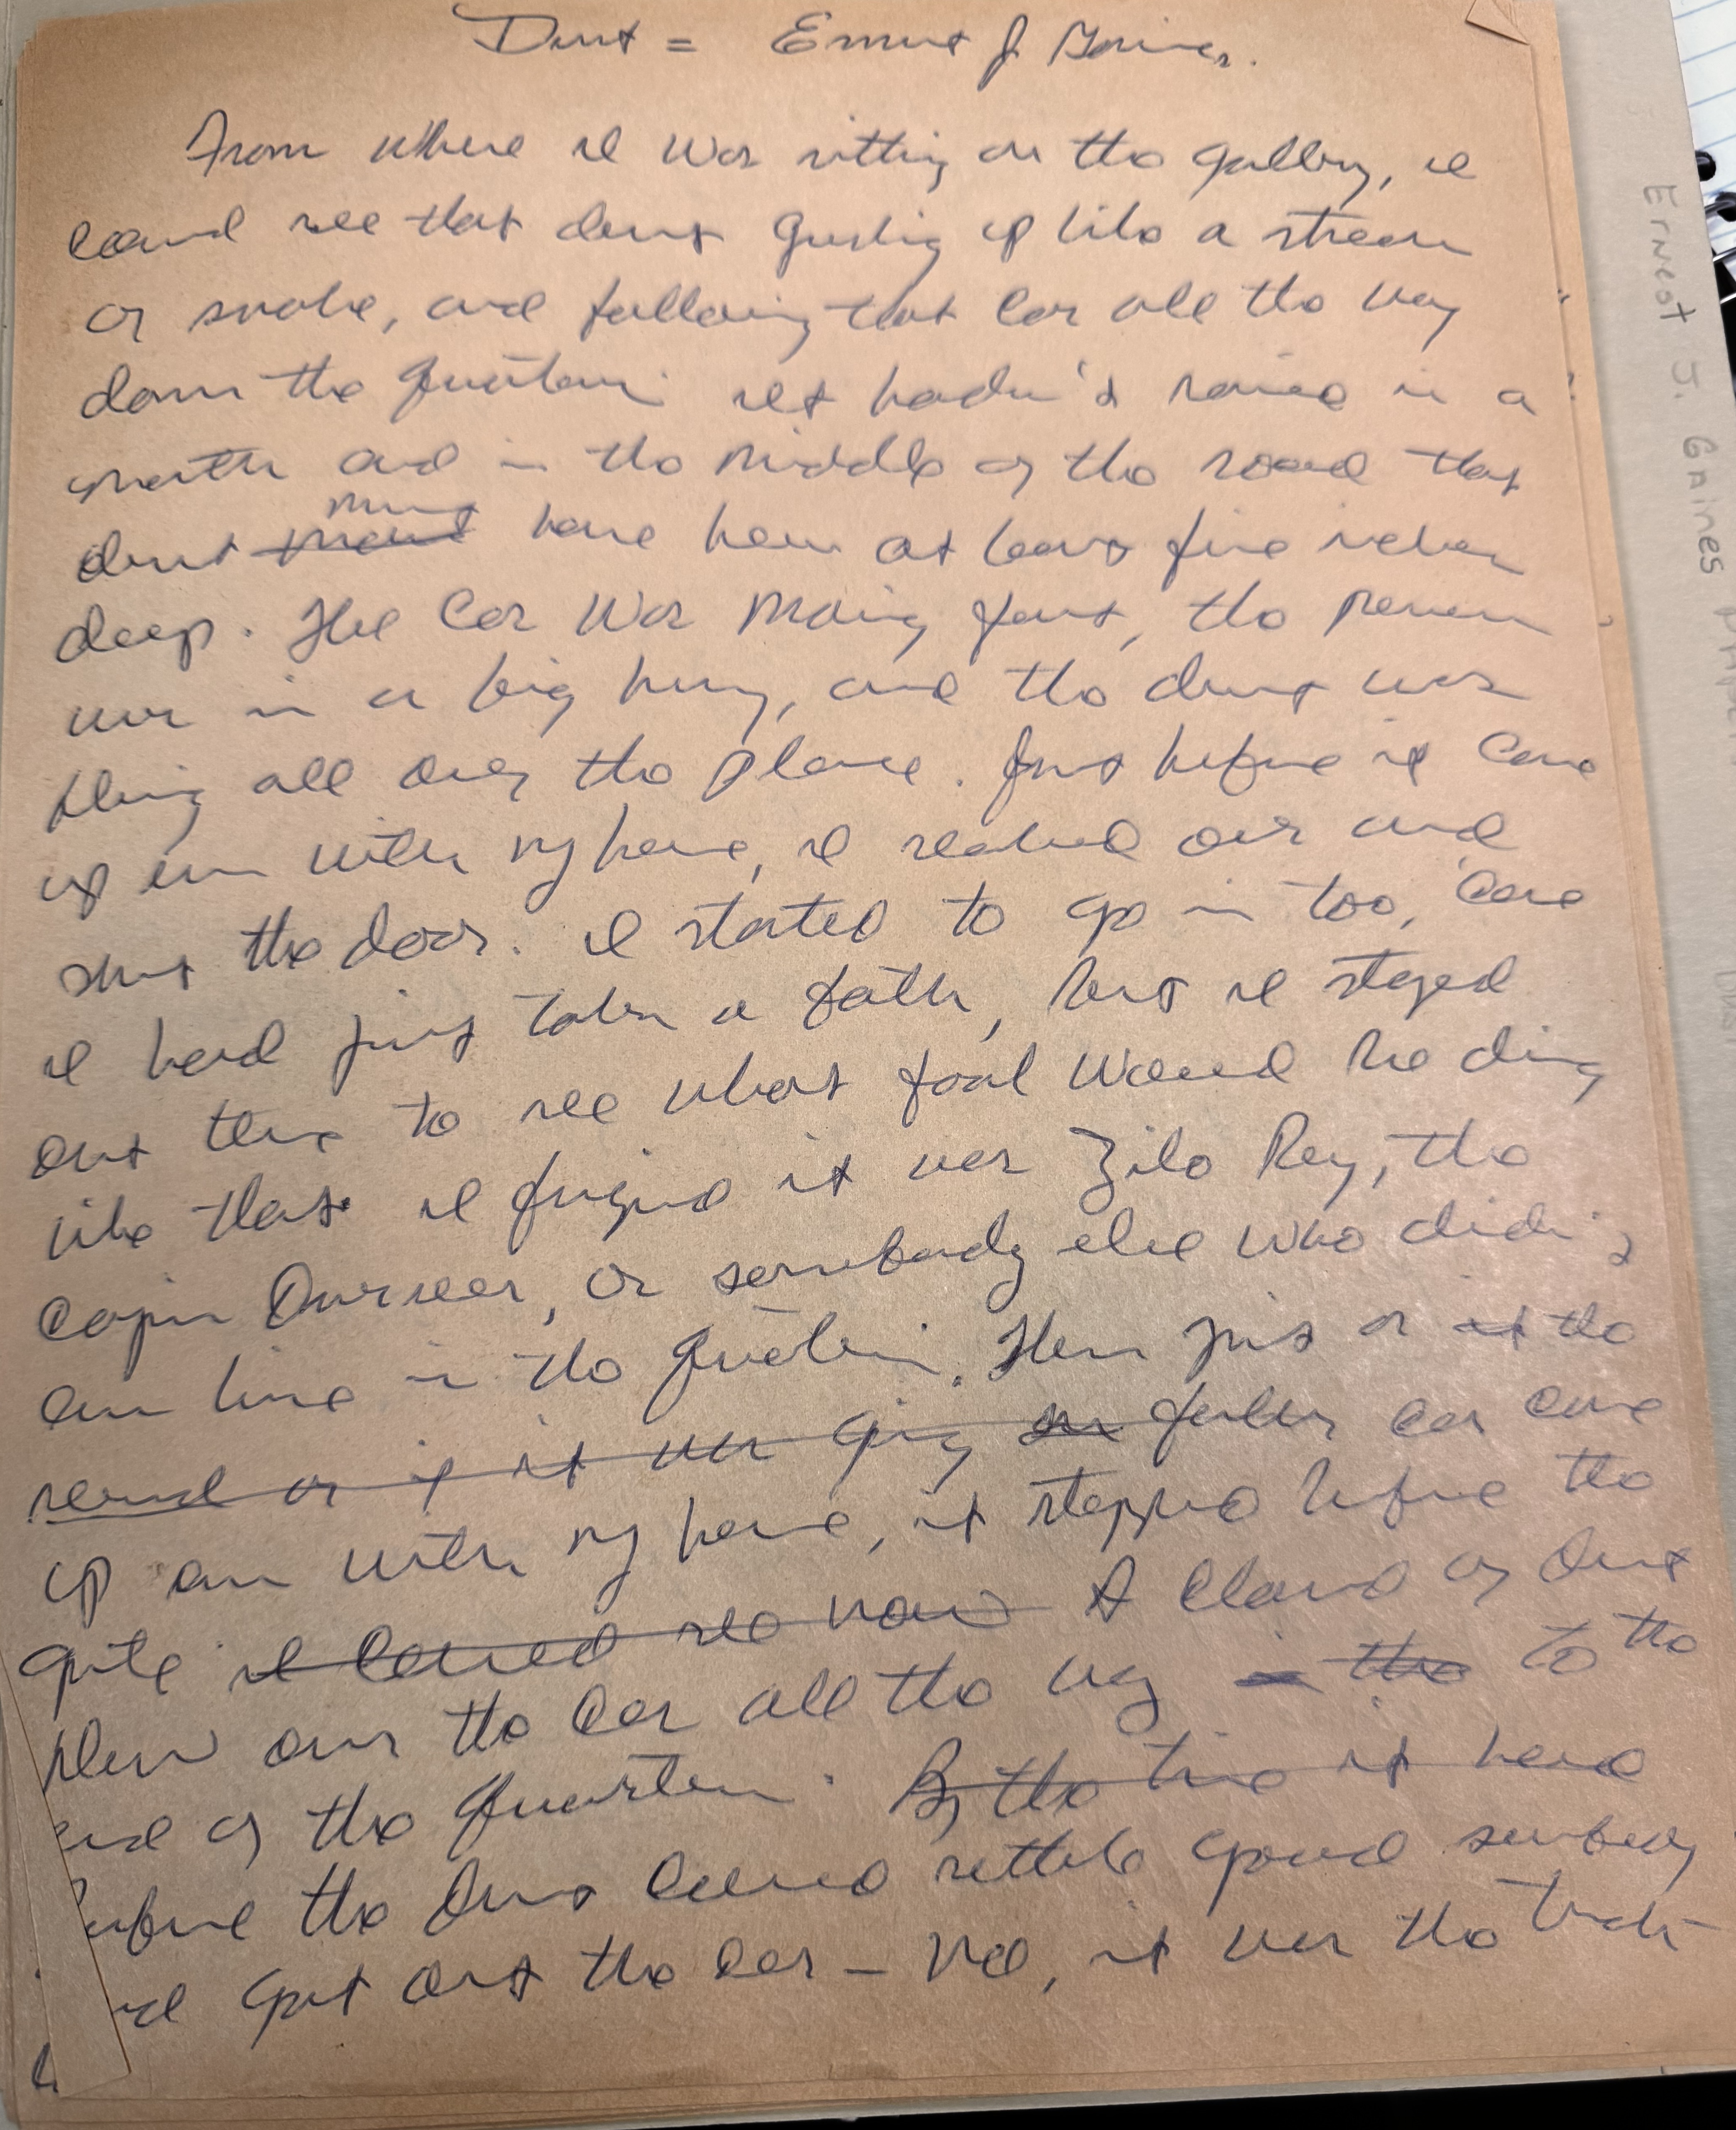 Dust = Ernest J. Gaines.
From where I was sitting on the gallery, I
could see that dust gushing up like a stream
of smoke, and following that car all the way
down the quarters. It hadn't rained in a
month and in the middle of the road that
must
dust must have been at least five inches
deep. The car was moving fast, the person
was in a big hurry, and the dust was
flying all over the place. Just before it came
up even with my house, I reached over and
shut the door. I started to go in too, 'cause
I had just taken a bath, but I stayed
out there to see what fool would be driving
like that. I figured it was the
Cajun Overseer, or somebody else who didn't
even live in the quarters. Then just as it the
seemed as if it was going car came
up even with my house, it stopped before the
gate I could see now A cloud of dust
blew over the car all the way in the to the
end of the quarters. By the time it had
Before the dust could settle good somebody
had got out the car - No, it was the
Ernest J. Gaines